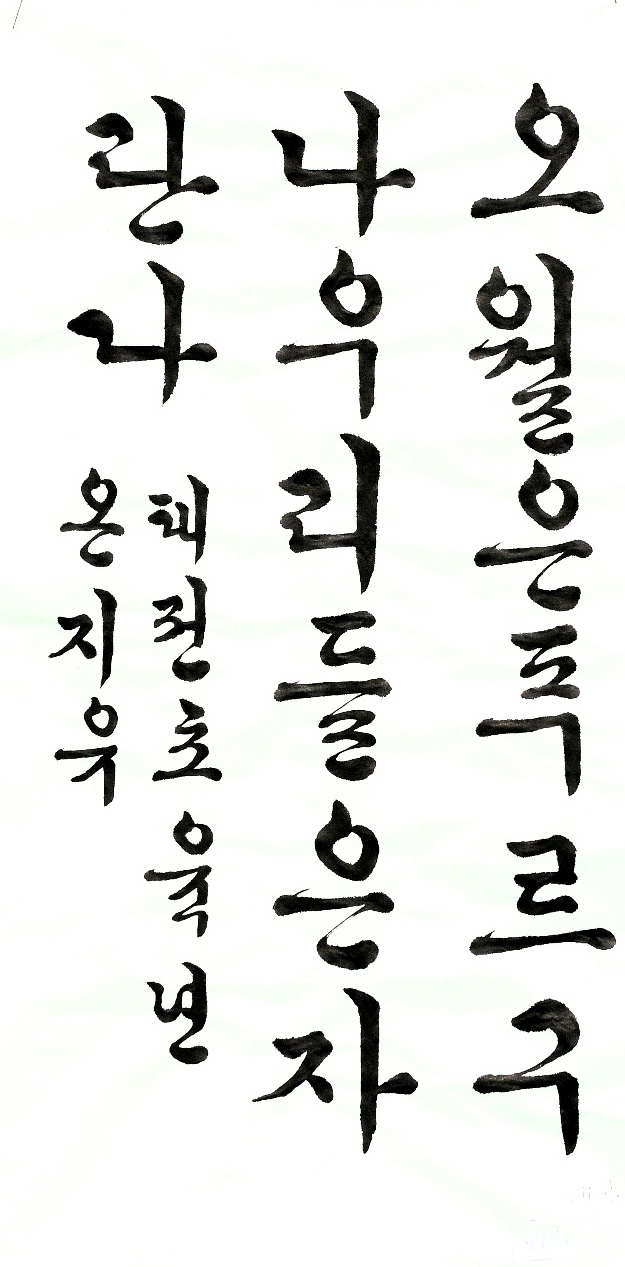 오월은푸르구
나우리들은자
란다
태전초육년
온지유